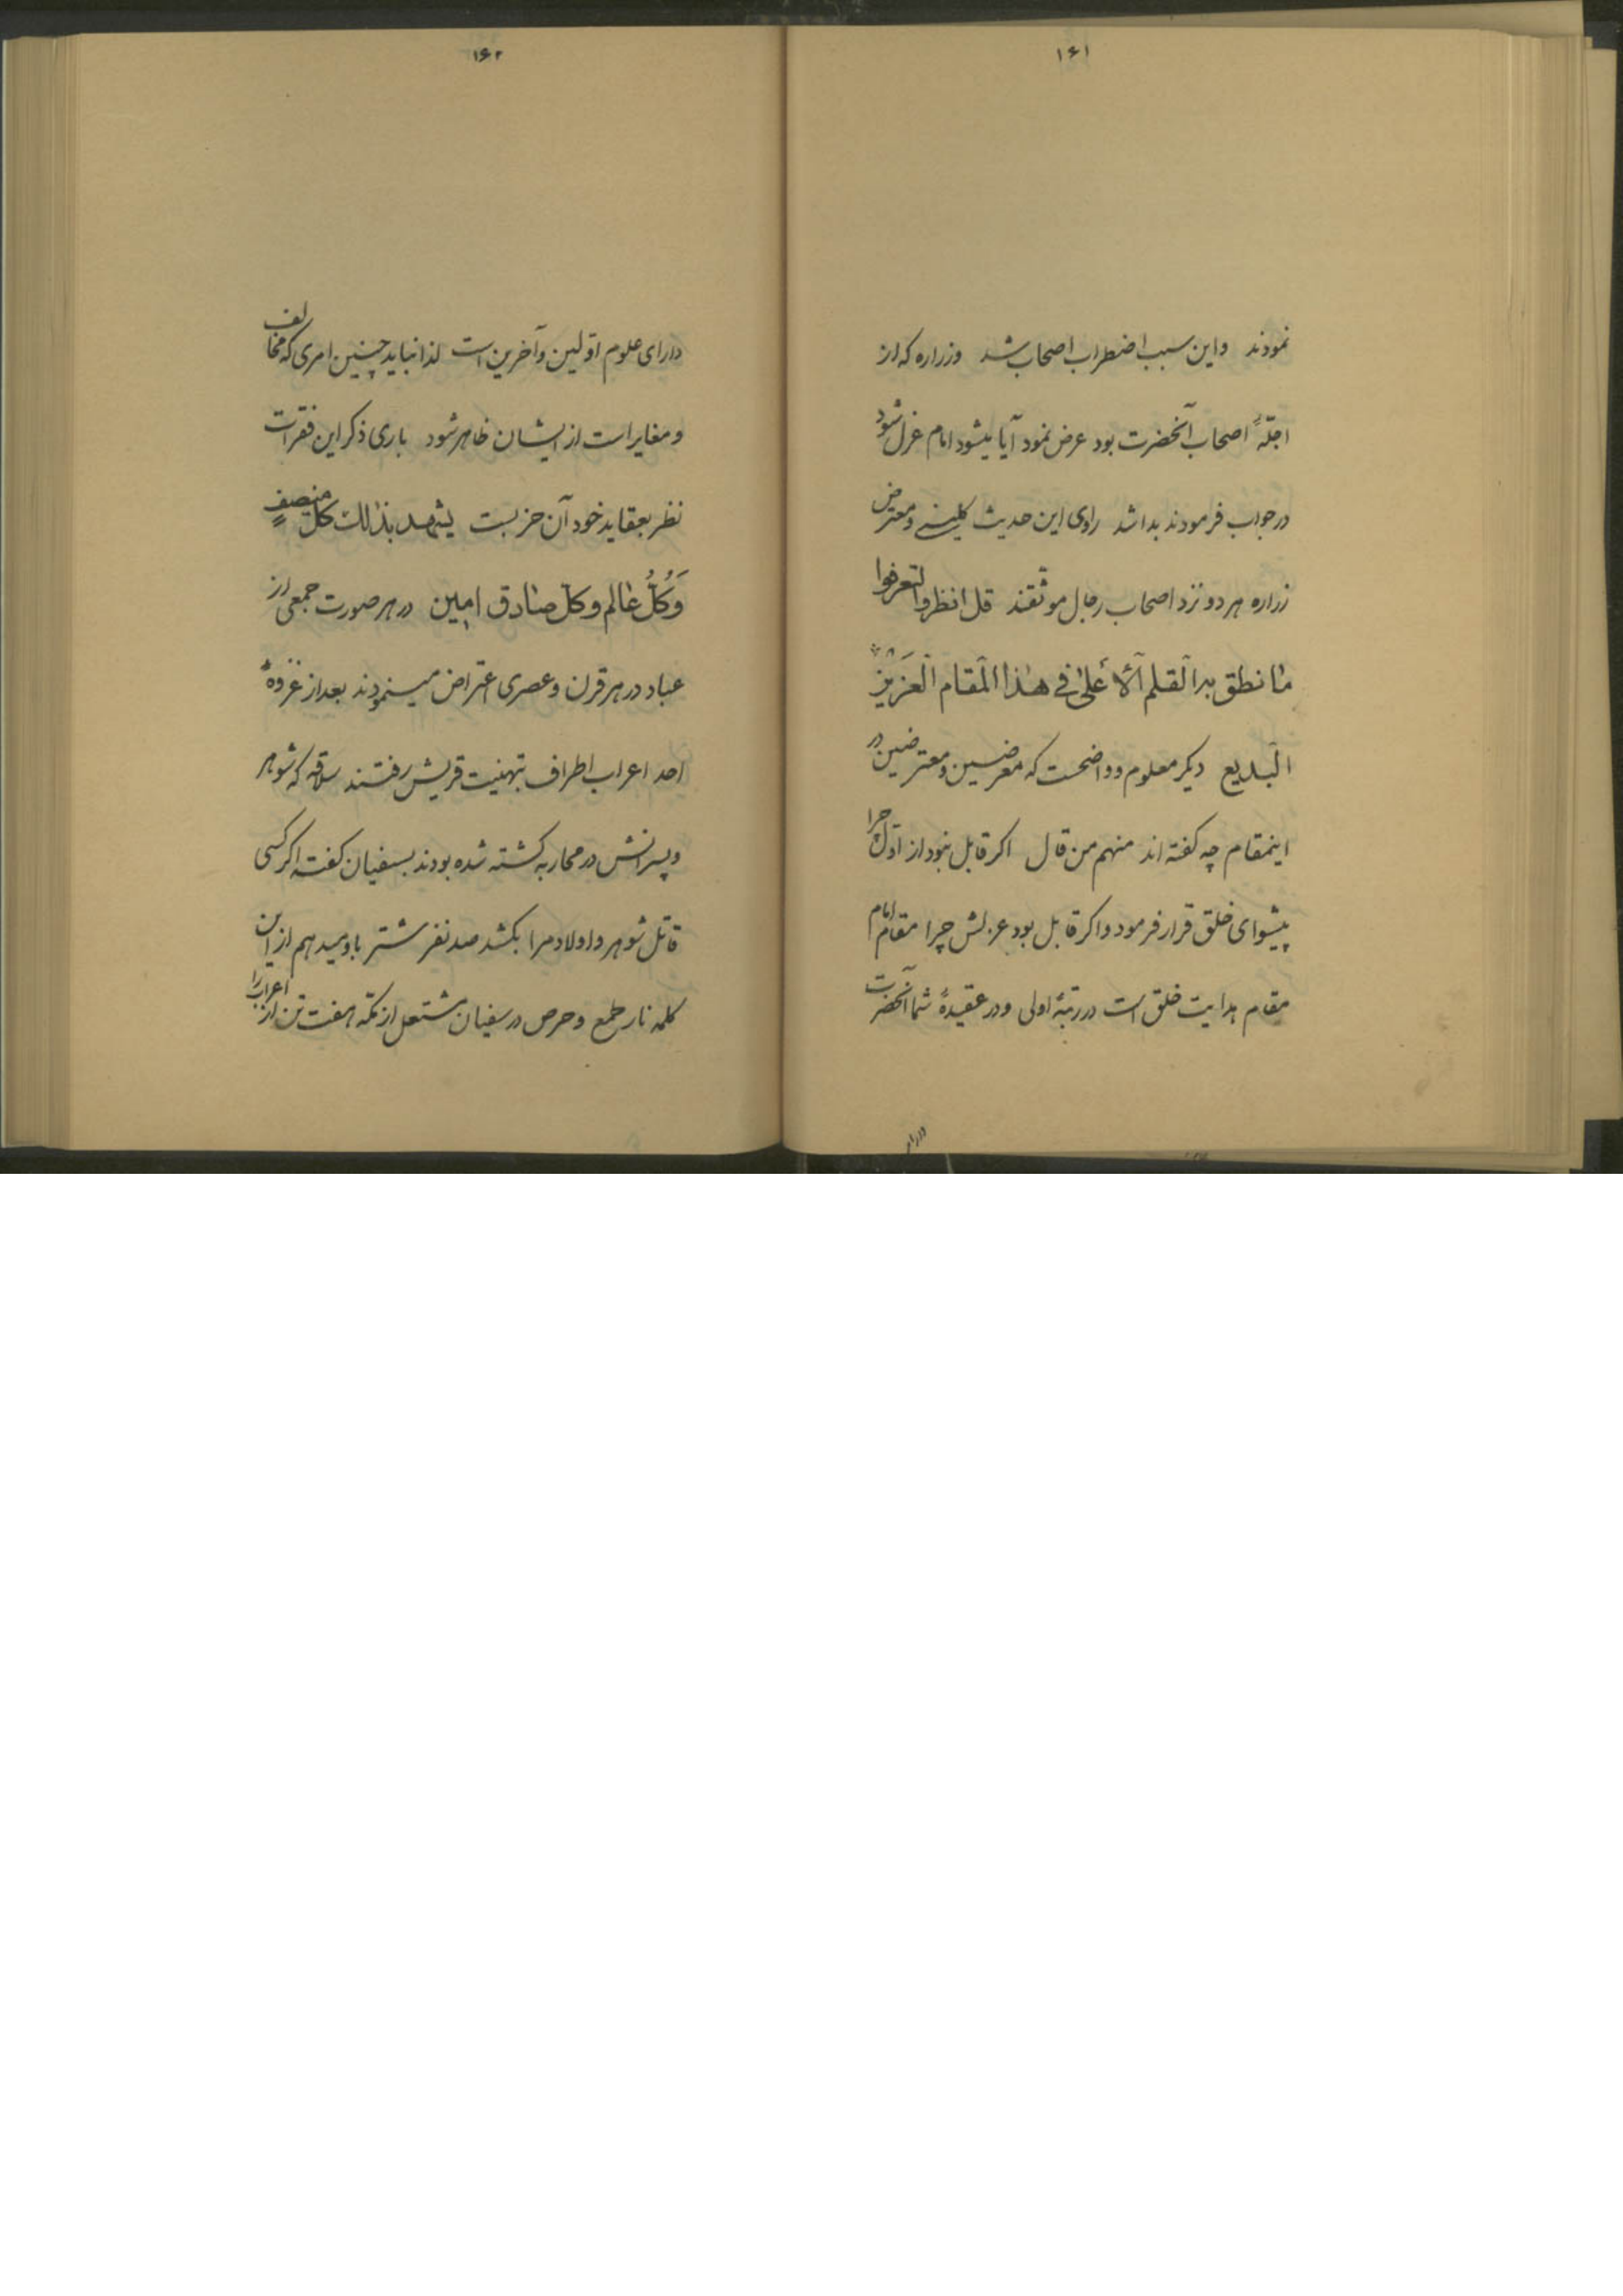 ۱۶۱
نمودند و این سبب اضطراب اصحاب شد و زراره که از
اجلّهٔ اصحاب آنحضرت بود عرض نمود آیا میشود امام عزل شود
در جواب فرمودند بدا شد راوی این حدیث کلینی و معترض
زراره هر دو نزد اصحاب رجال موثّقند قل انظروا لتعرفوا
ما نطق به القلم الأعلی فی هذا المقام العَزیز
البدیع دیگر معلوم و واضحست که معرضین و معترضین در
اینمقام چه گفته‌اند منهم من قال اگر قابل نبود از اوّل چرا
پیشوای خلق قرار فرمود و اگر قابل بود عزلش چرا مقام امام
مقام هدایت خلق است در رتبهٔ اولی و در عقیدهٔ شما آنحضرت
دارای
۱۶۲
دارای علوم اوّلین و آخرین است لذا نباید چنین امری که مخالف
و مغایر است از ایشان ظاهر شود باری ذکر این فقرات
نظر بعقاید خود آن حزبست یشهد بذلک کلّ منصفٍ
وَکُلُّ عالم و کلّ صادق امین در هر صورت جمعی از
عباد در هر قرن و عصری اعتراض مینمودند بعد از غزوهٔ
احد اعراب اطراف بتهنیت قریش رفتند سلاقه که شوهر
و پسرانش در محاربه کشته شده بودند بسفیان گفت اگر کسی
قاتل شوهر و اولاد مرا بکشد صد نفر شتر باو میدهم از این
کلمه نار طمع و حرص در سفیان مشتعل از مکّه هفت تن از اعراب را